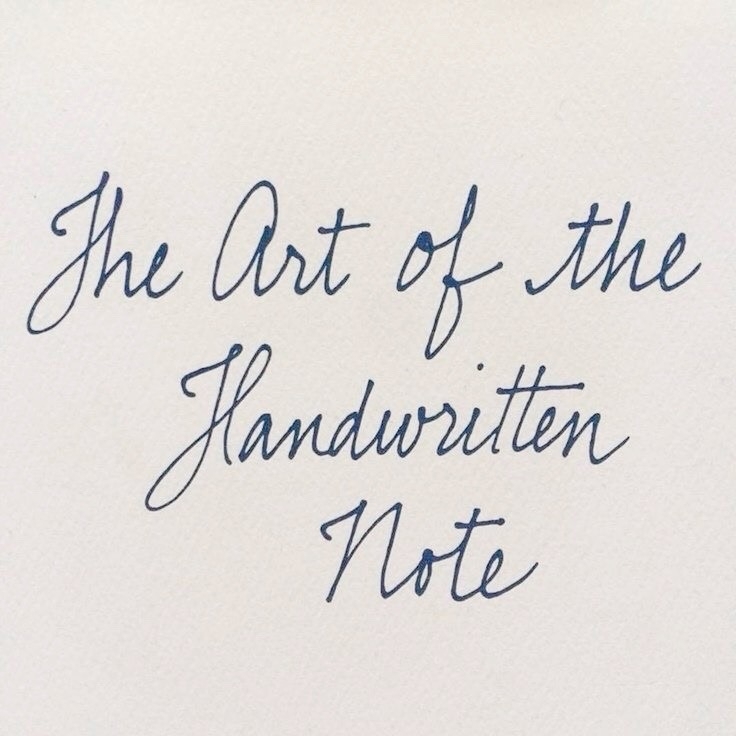 The Art of the
Handwritten
Note